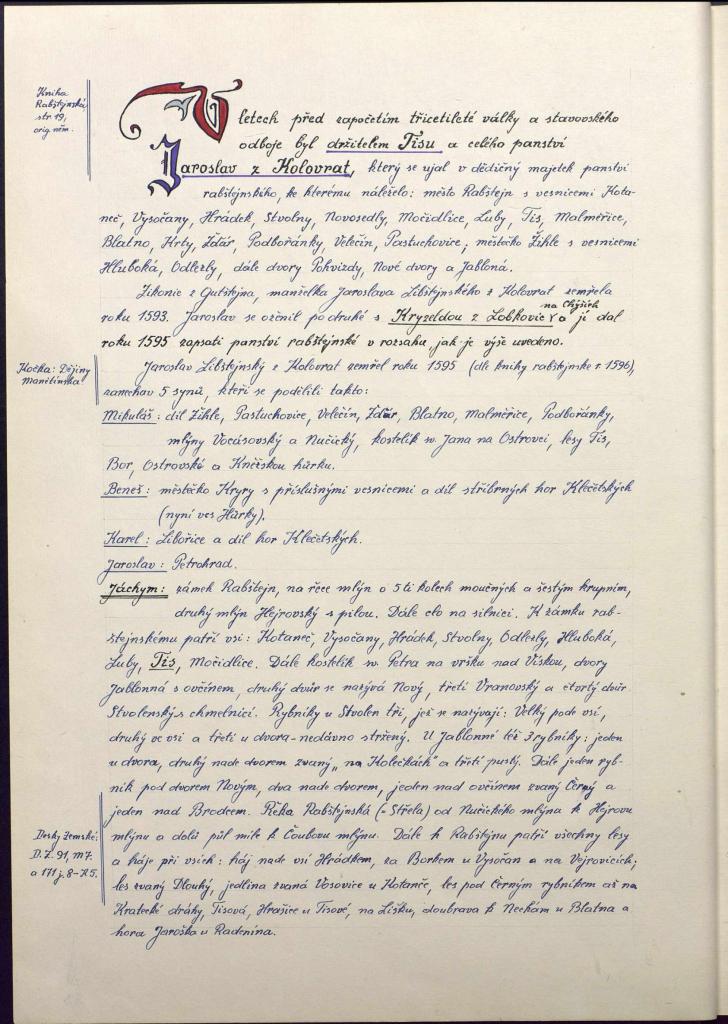 Kniha
Rabštejnská
str. 19,
orig. něm.
V letech před započetím třicetileté války a stavovského
odboje byl držitelem Tisu a celého panství
Jaroslav z Kolovrat, který se ujal v dědičný majetek panství
rabštejnského, ke kterému náleželo: město Rabštejn s vesnicemi Kota-
neč, Vysočany, Hrádek, Stvolny, Novosedly, Močidlice, Luby, Tis, Malměřice,
Blatno, Krty, Žďár, Podbořánky, Velečín, Pastuchovice; městečko Žihle s vesnicemi
Hluboká, Odlezly, dále dvory Pohvizdy, Nové dvory a Jabloná.
Zikonie z Gutštejna, manželka Jaroslava Libštejnského z Kolovrat zemřela
roku 1593. Jaroslav se oženil po druhé s Kryzeldou z Lobkovic na Chýších a jí dal
roku 1595 zapsati panství rabštejnské v rozsahu, jak je výše uvedeno.
Kočka: Dějiny
manětínska
Jaroslav Libštejnský z Kolovrat zemřel roku 1595 (dle knihy rabštejnské r. 1596),
zanechav 5 synů, kteří se podělili takto:
Mikuláš: díl Žihle, Pastuchovice, Velečín, Žďár, Blatno, Malměřice, Podbořánky,
mlýny Vocásovský a Nučický, kostelík sv. Jana na Ostrovci, lesy Tis,
Bor, Ostrovské a Kněžskou hůrku.
Beneš: městečko Kryry s příslušnými vesnicemi a díl stříbrných hor Klečetských
(nyní ves Hůrky).
Karel: Libořice a díl hor Klečetských.
Jaroslav: Petrohrad.
Jáchym: zámek Rabštejn, na řece mlýn o 5ti kolech moučných a šestým krupním,
druhý mlýn Hejrovský s pilou. Dále clo na silnici. K zámku rab-
štejnskému patří vsi: Kotaneč, Vysočany, Hrádek, Stvolny, Odlezly, Hluboká,
Luby, Tis, Močidlice. Dále kostelík sv. Petra na vršku nad Vískou, dvory
Jablonná s ovčínem, druhý dvůr se nazývá Nový, třetí Vranovský a čtvrtý dvůr
Stvolenský s chmelnicí. Rybníky u Stvolen tři, jež se nazývají: Velký pode vsí,
druhý ve vsi a třetí u dvora - nedávno stržený. U Jablonné též 3 rybníky: jeden
u dvora, druhý nade dvorem zvaný „na Kolečkách" a třetí pustý. Dále jeden ryb-
ník pod dvorem Novým, dva nade dvorem, jeden nad ovčínem zvaný Černý a
jeden nad Brodcem. Řeka Rabštejnská (= Střela) od Nučického mlýna k Hejrovu
mlýnu a dolů půl míle k Čoubovu mlýnu. Dále k Rabštejnu patří všechny lesy
Desky zemské:
D.Z. 91, M7.
a 171 j. 8-K5.
a háje při vsích: háj nade vsí Hrádkem, za Borkem u Vysočan a na Vejrovicích;
les zvaný Dlouhý, jedlina zvaná Vosovice u Kotanče, les pod Černým rybníkem až na
Kratecké dráhy, Tisová, Hrašice u Tisové, na Lišku, doubrava k Nechám u Blatna a
hora Jaroška u Radenína.